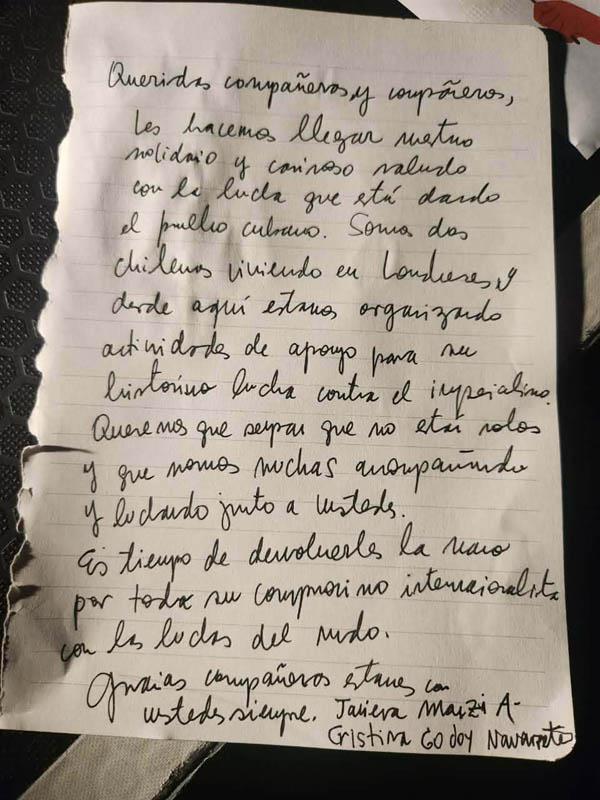 Queridas compañeras, y compañeros,
Les hacemos llegar nuestro
solidario y cariñoso saludo
con la lucha que está dando
el pueblo cubano. Somos dos
chilenas viviendo en Londres, y
desde aquí estamos organizando
actividades de apoyo para su
histórica lucha contra el imperialismo.
Queremos que sepan que no están solos
y que somos muchas acompañando
y luchando junto a ustedes.
Es tiempo de devolverles la mano
por todo su compromiso internacionalista
con las luchas del mundo.
Gracias compañeros estamos con
ustedes siempre. Javiera A-
Cristina Godoy Navarrete